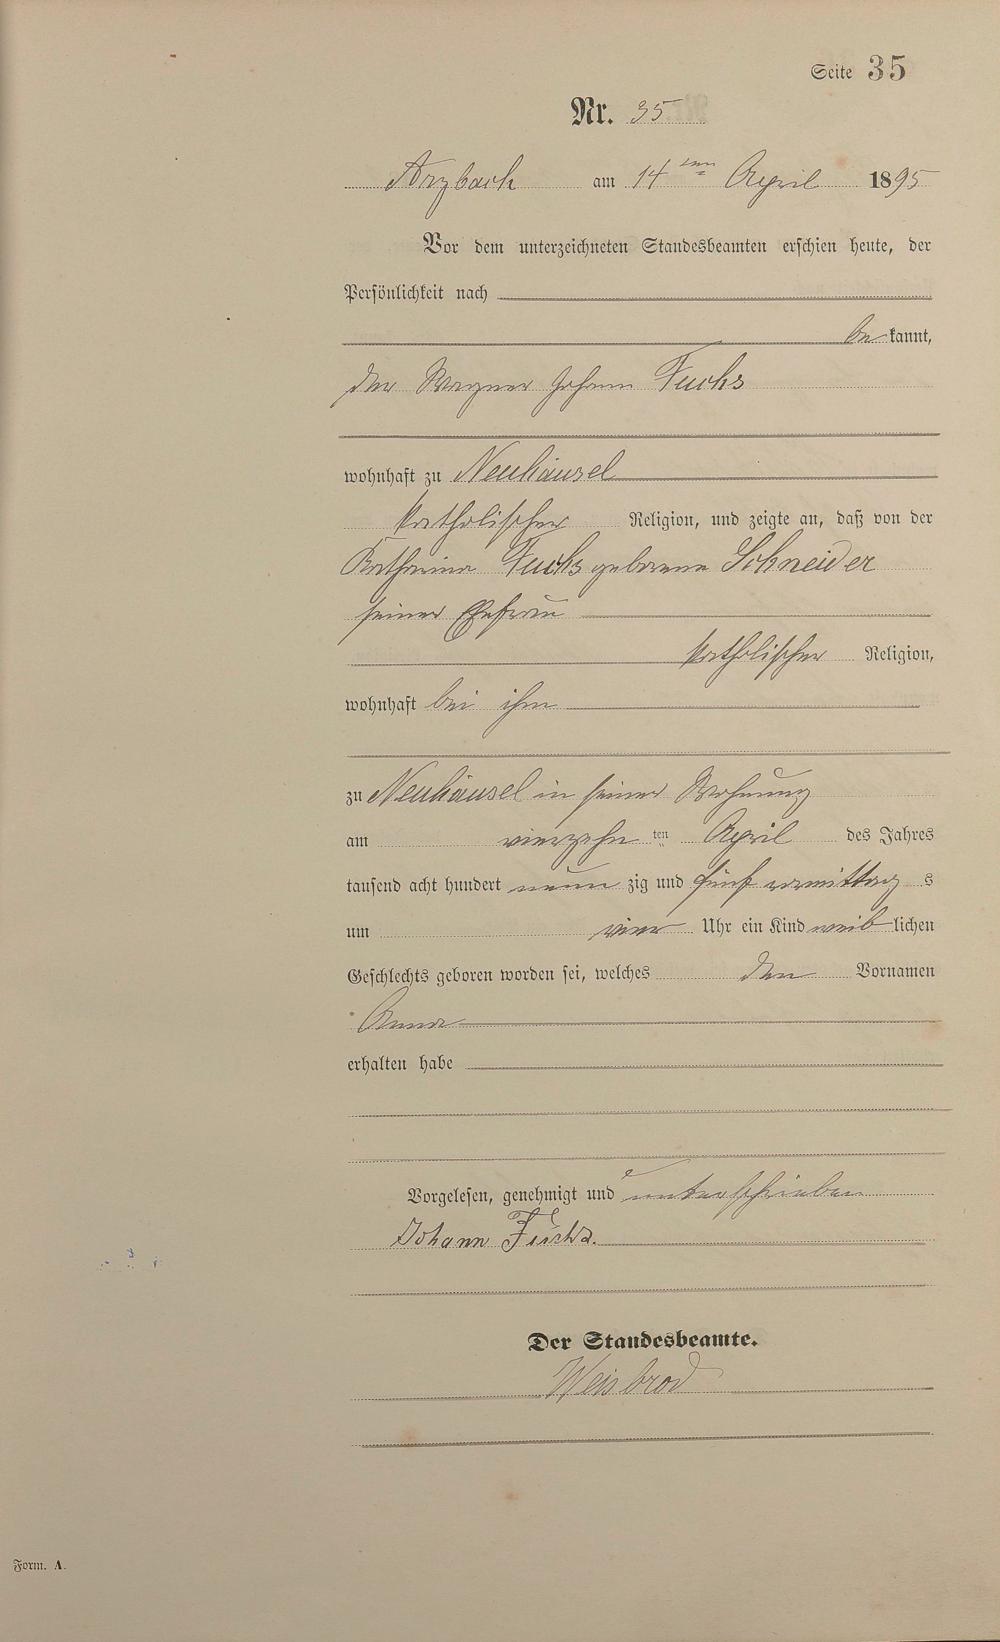 Seite 35
Nr. 35
Arzbach am 14 ten April 1895
Vor dem unterzeichneten Standesbeamten erschien heute, der
Persönlichkeit nach
be kannt,
der Wagner Johann Fuchs
wohnhaft zu Neuhäusel
katholischer Religion, und zeigte an, daß von der
Katharina Fuchs geborene Schneider
seiner Ehefrau
katholischer Religion,
wohnhaft bei ihm
zu Neuhäusel in seiner Wohnung
am vierzehn ten April des Jahres
tausend acht hundert neun zig und fünf vormittag s
um vier Uhr ein Kind weib lichen
Geschlechts geboren worden sei, welches den Vornamen
Anna
erhalten habe
Vorgelesen, genehmigt und unterschrieben
Johann Fuchs.
Der Standesbeamte.
Weisbrod
Form. A.